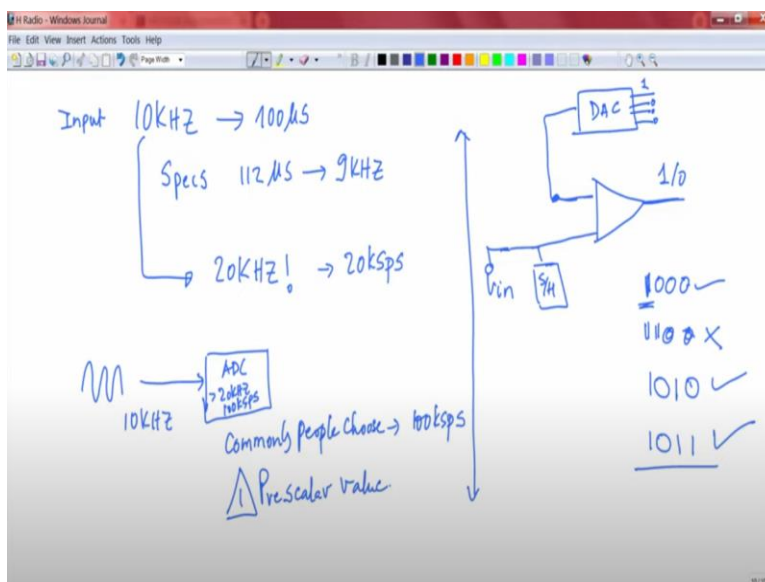 H Radio - Windows Journal
File Edit View Insert Actions Tools Help
Page Width
B I
Input 10KHZ → 100µs
Specs 112µs → 9KHZ
20KHZ! → 20ksps
10KHZ
ADC
>20KHZ
100ksps
Commonly people choose → 100ksps
1 Prescalar value.
DAC
1
0
0
0
1/0
Vin
S/H
1000 ✓
1100 X
1010 ✓
1011 ✓